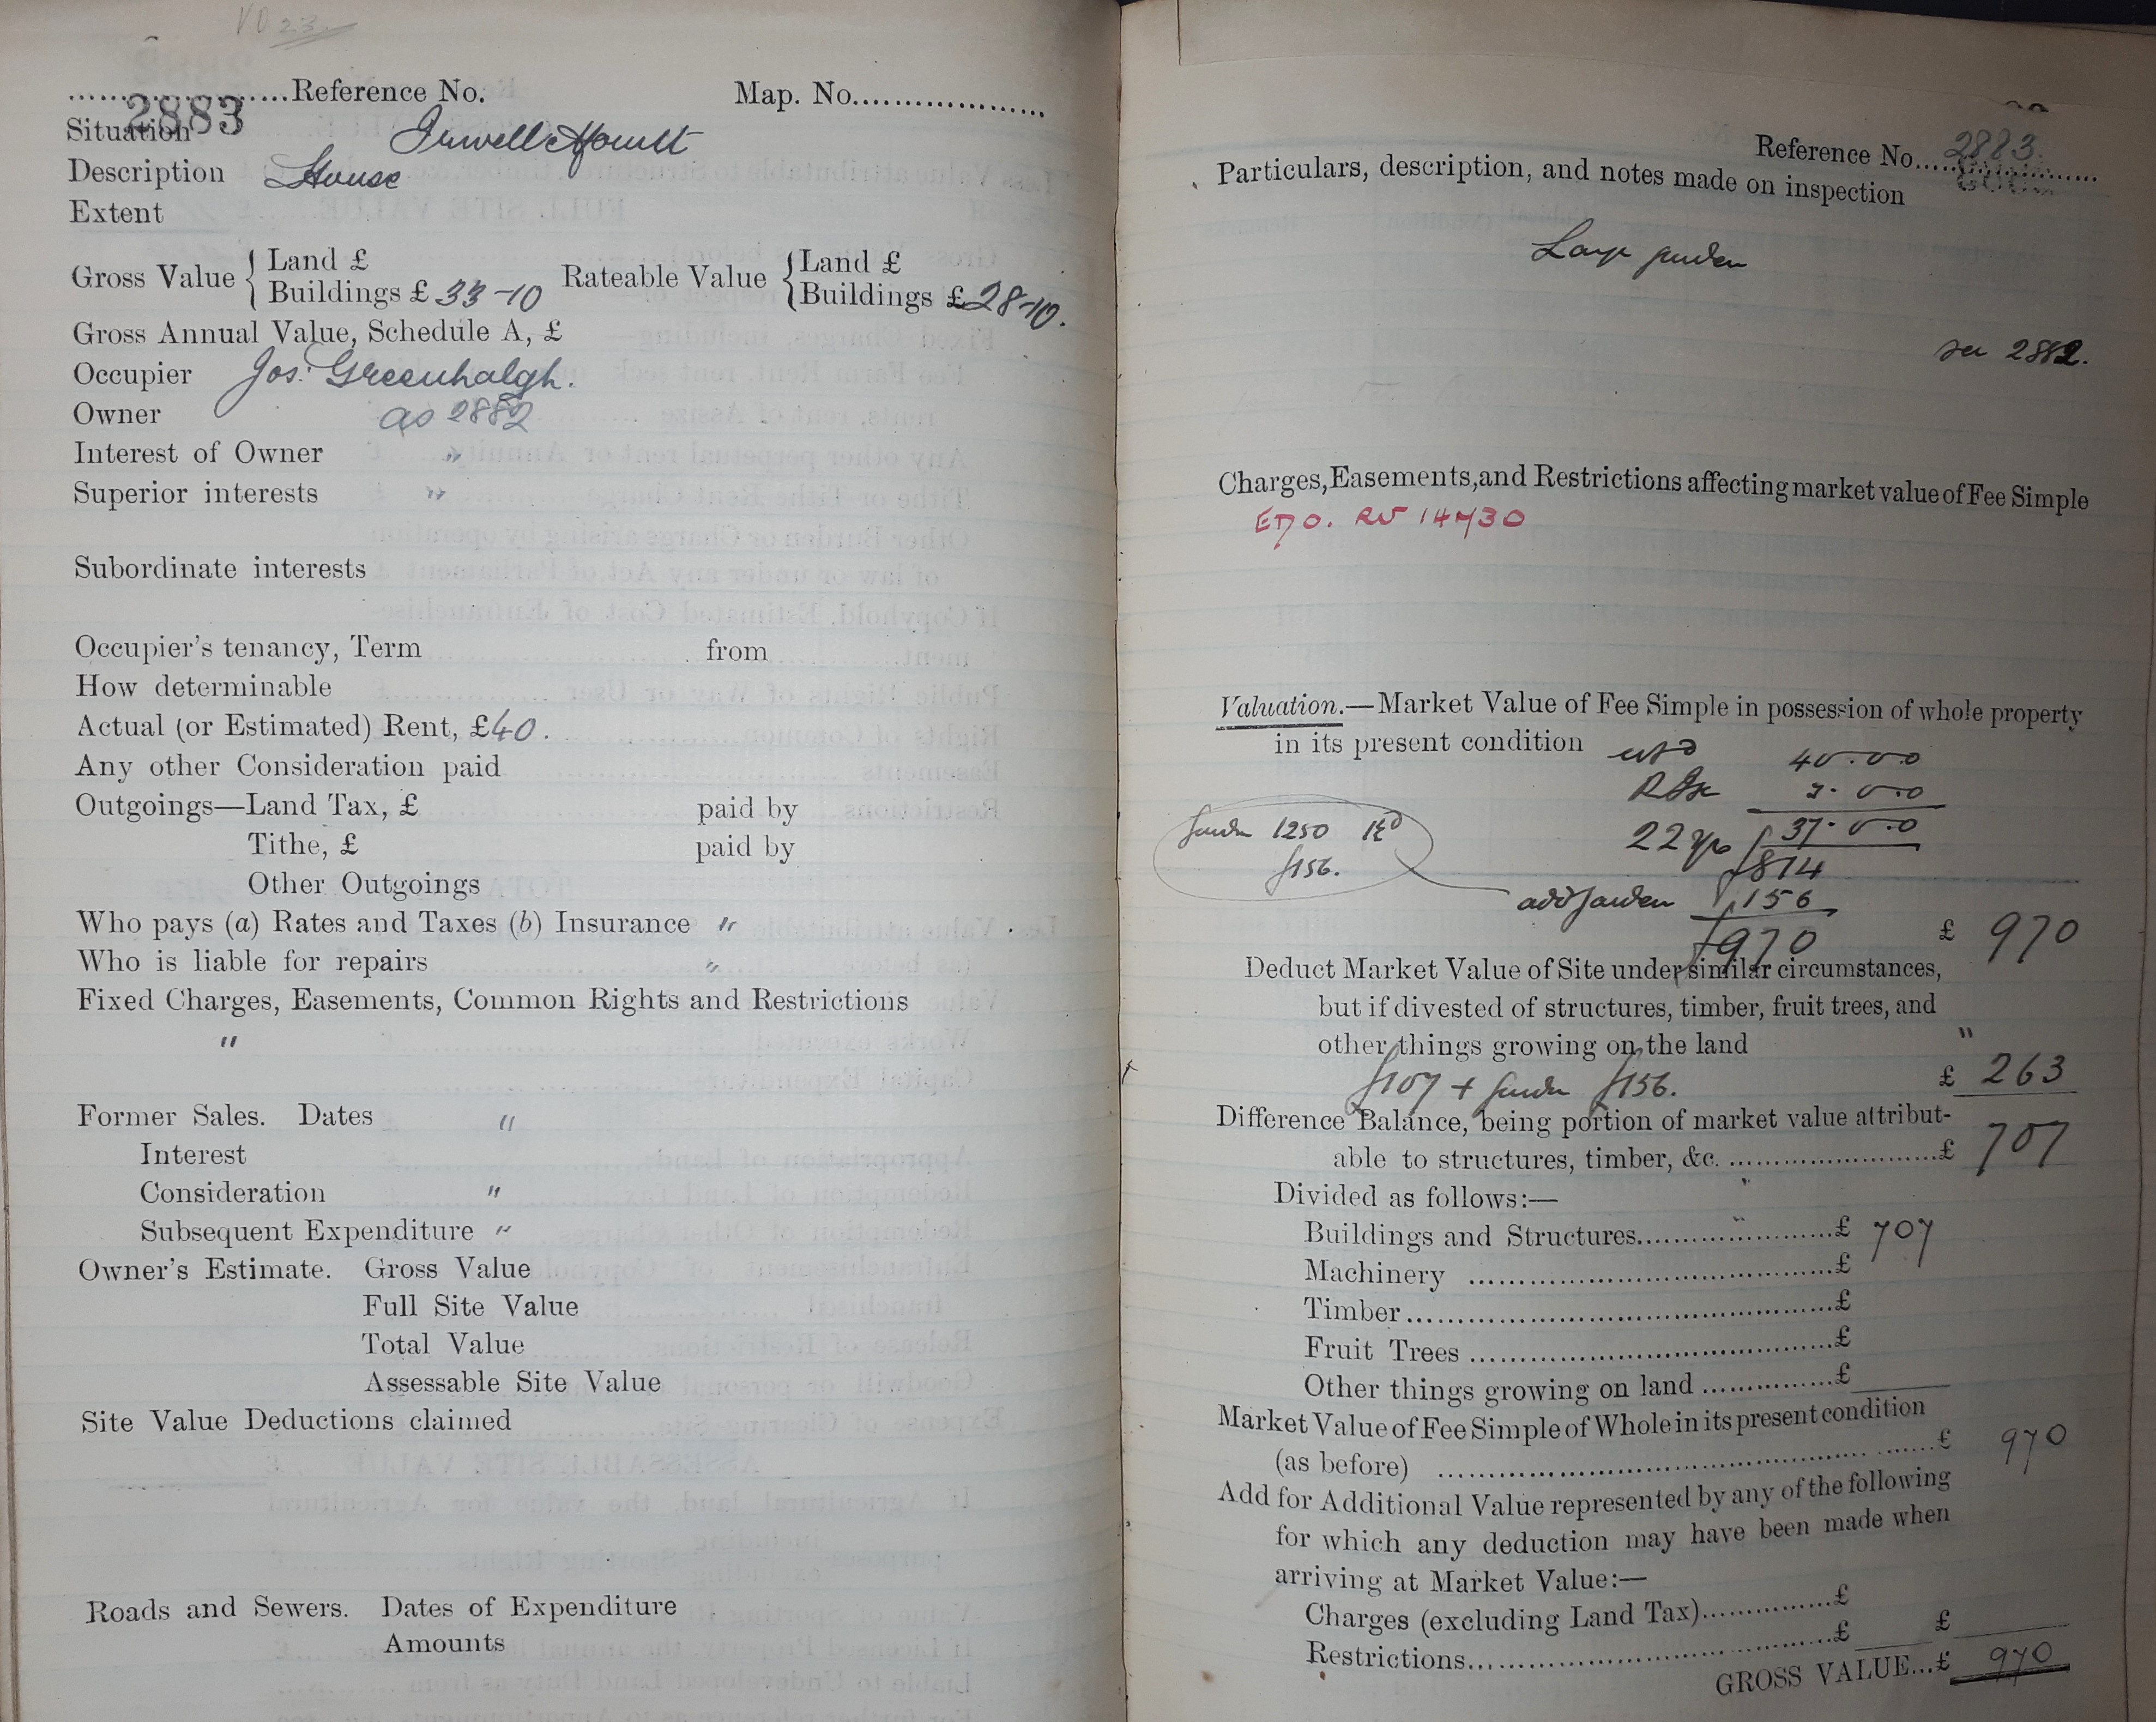 VO 23
..................Reference No.
Map. No....................
2883
Situation Irwell Mount
Description House
Extent
Gross Value { Land £
Buildings £ 33-10
Rateable Value { Land £
Buildings £28-10.
Gross Annual Value, Schedule A, £
Occupier Jos: Greenhalgh.
Owner as 2882
Interest of Owner "
Superior interests "
Subordinate interests
Occupier's tenancy, Term from
How determinable
Actual (or Estimated) Rent, £40.
Any other Consideration paid
Outgoings—Land Tax, £ paid by
Tithe, £ paid by
Other Outgoings
Who pays (a) Rates and Taxes (b) Insurance "
Who is liable for repairs "
Fixed Charges, Easements, Common Rights and Restrictions
"
Former Sales. Dates "
Interest
Consideration "
Subsequent Expenditure "
Owner's Estimate. Gross Value
Full Site Value
Total Value
Assessable Site Value
Site Value Deductions claimed
Roads and Sewers. Dates of Expenditure
Amounts
Reference No. 2883
Particulars, description, and notes made on inspection
Large garden
see 2882.
Charges, Easements, and Restrictions affecting market value of Fee Simple
Valuation.—Market Value of Fee Simple in possession of whole property
in its present condition
40.0.0
3.0.0
37.0.0
22 yp £814
garden 1250
£156.
add garden £156
£970
£ 970
Deduct Market Value of Site under similar circumstances,
but if divested of structures, timber, fruit trees, and
other things growing on the land "
£107 + garden £156.
£ 263
Difference Balance, being portion of market value attribut-
able to structures, timber, &c. ........................£ 707
Divided as follows:—
Buildings and Structures........................£ 707
Machinery ........................£
Timber........................£
Fruit Trees ........................£
Other things growing on land ...............£
Market Value of Fee Simple of Whole in its present condition
(as before) ........................£ 970
Add for Additional Value represented by any of the following
for which any deduction may have been made when
arriving at Market Value:—
Charges (excluding Land Tax)...............£
Restrictions........................£ £
GROSS VALUE...£ 970